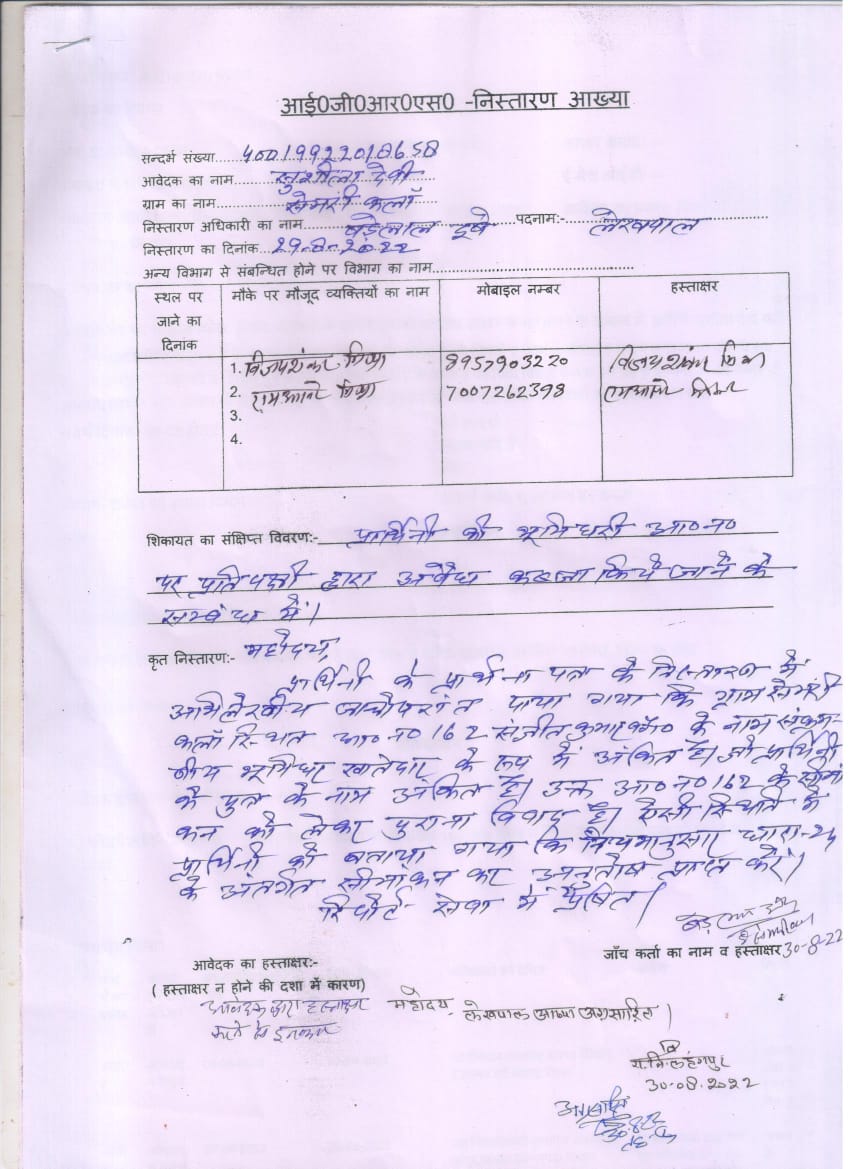 आई0जी0आर0एस0 -निस्तारण आख्या
सन्दर्भ संख्या....40019922018658
आवेदक का नाम....सुशीला देवी
ग्राम का नाम....सेमरी कलाँ
निस्तारण अधिकारी का नाम....बड़ेलाल दूबे....पदनाम:- लेखपाल
निस्तारण का दिनांक...29-8-2022
अन्य विभाग से संबन्धित होने पर विभाग का नाम....
स्थल पर जाने का दिनांक मौके पर मौजूद व्यक्तियों का नाम मोबाइल नम्बर हस्ताक्षर
1. विजयशंकर मिश्रा 8957903220 विजय शंकर मिश्रा
2. 7007262398
3.
4.
शिकायत का संक्षिप्त विवरण:- प्रार्थिनी की भूमिधरी आ०न०
पर प्रतिपक्षी द्वारा अवैध कब्जा किये जाने के
सम्बंध में।
कृत निस्तारण:- महोदय,
प्रार्थिनी के प्रार्थना पत्र के निस्तारण में
अभिलेखीय जाचोपरांत पाया गया कि ग्राम सेमरी
कलाँ स्थित आ० न० 162 संजीत कुमार के नाम संक्रम-
णीय भूमिधर खातेदार के रूप में अंकित है। जो प्रार्थिनी
के पुत्र के नाम अंकित है। उक्त आ० न० 162 के सीमां
कन को लेकर पुराना विवाद है। ऐसी स्थिति में
प्रार्थिनी को बताया गया कि नियमानुसार धारा-24
के अंतर्गत सीमांकन का अनुतोष प्राप्त करें।
रिपोर्ट सेवा में प्रेषित।
जाँच कर्ता का नाम व हस्ताक्षर 30-8-22
आवेदक का हस्ताक्षर:-
( हस्ताक्षर न होने की दशा में कारण)
आवेदक द्वारा हस्ताक्षर
करने से इनकार
महोदय- लेखपाल आख्या अग्रसारित।
रा.नि.लहंगपुर
30.08.2022